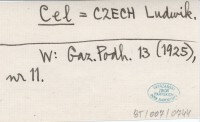 Cel = CZECH Ludwik.
W: Gaz. Podh. 13 (1925),
nr 11.
BT/007/0744